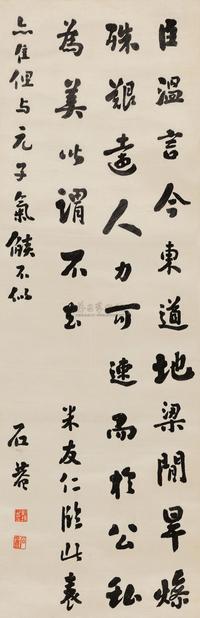 臣溫言今東道地梁間旱燥
殊艱遠人力可速而於公私
為美此謂不去
米友仁臨此表
點但與元子氣
不似
石菴